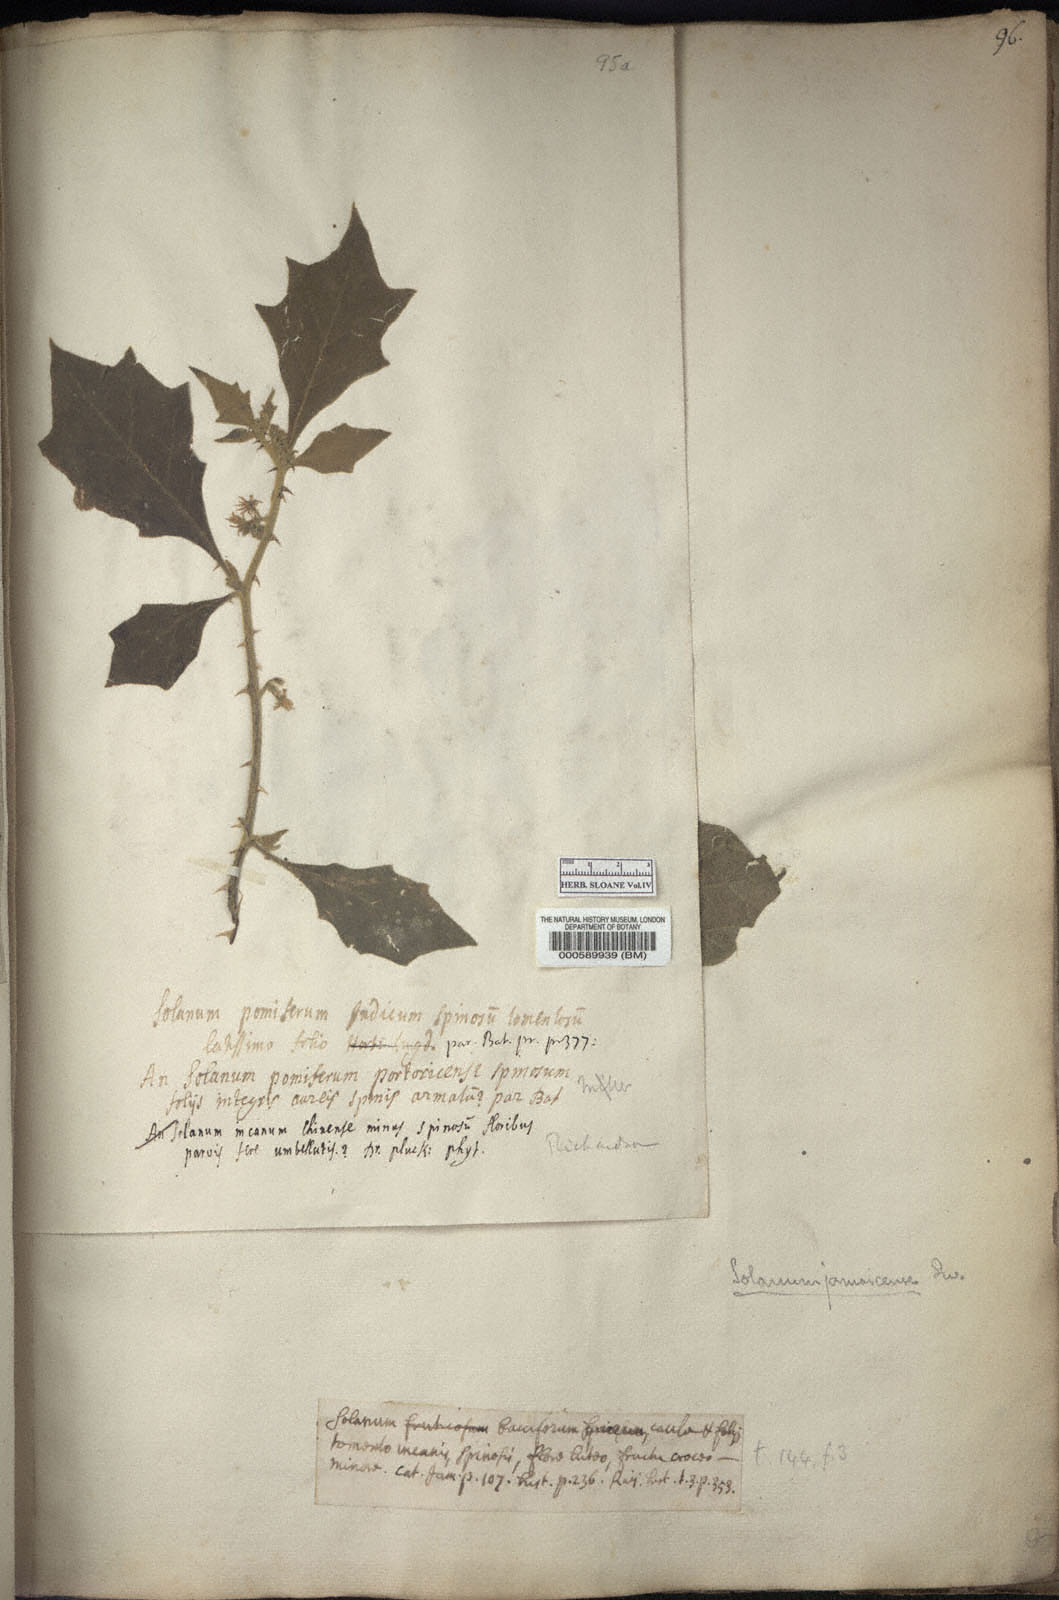 96.
95a
HERB. SLOANE Vol.IV
THE NATURAL HISTORY MUSEUM, LONDON
DEPARTMENT OF BOTANY
000589939 (BM)
Solanum pomiferum Indicum spinosū tomentosū
latissimo folio par. Bat. pr. p. 377:
An Solanum pomiferum portoricense spinosum
folijs integris aureis spinis armatū? par Bat
An Solanum incanum Chinense minus spinosū floribus
parvis fere umbellatis? Dr. pluck: phyt.
Richardson
Solanum jamaicense Sw.
Solanum fruticosum bacciferum spinosum, caule & folijs
tomento incanis, spinosis, flore luteo, fructu croceo
minore. Cat. Jam. p. 107. hist. p. 236. Raij. hist. t. 3. p. 353.
t. 144, f. 3